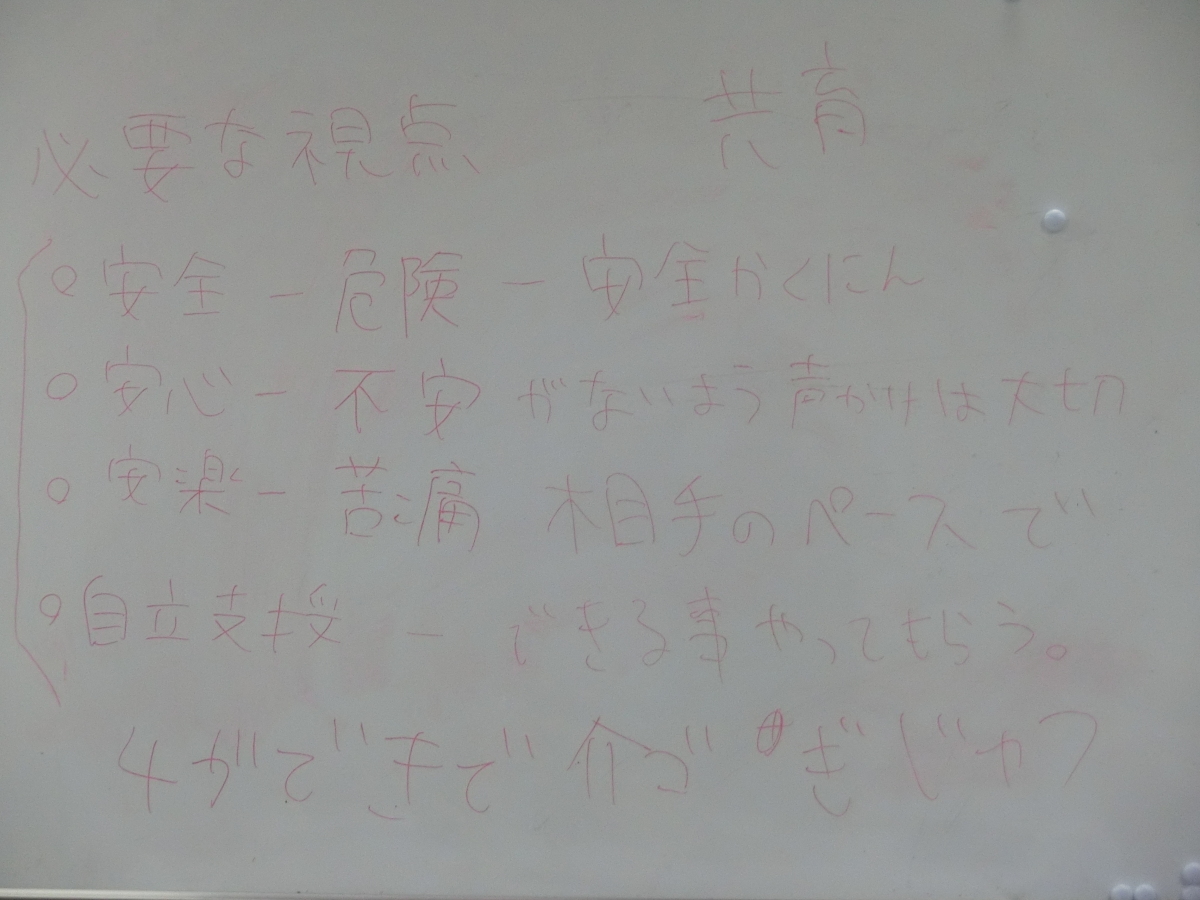 必要な視点 — 共育
○安全 — 危険 — 安全かくにん
○安心 — 不安がないよう声かけは大切
○安楽 — 苦痛 相手のペースで
○自立支援 — できる事やってもらう。
4ができで介ご ぎじ